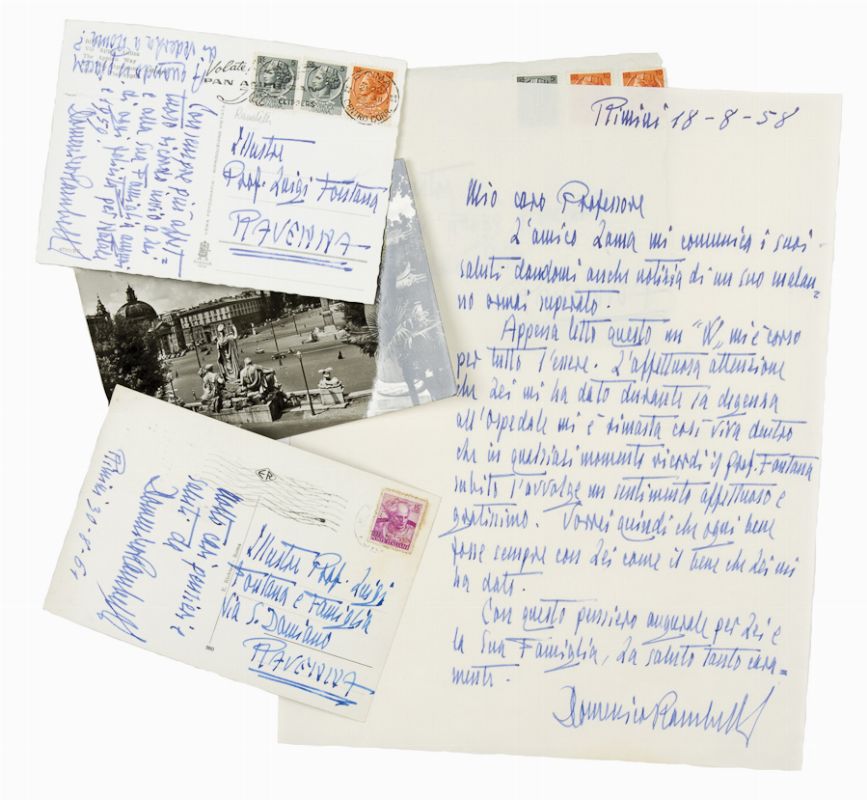 Rimini 18-8-58
Mio caro Professore
L'amico Lama mi comunica i suoi
saluti dandomi anche notizia di un suo malan=
no ormai superato.
Appena letto questo un "W" mi è corso
per tutto l'essere. L'affettuosa attenzione
che Lei mi ha dato durante la degenza
all'Ospedale mi è rimasta così viva dentro
che in qualsiasi momento ricordi il Prof. Fontana
subito l'avvolge un sentimento affettuoso e
gratissimo. Vorrei quindi che ogni bene
fosse sempre con Lei come il bene che Lei mi
ha dato.
Con questo pensiero augurale per Lei e
la Sua Famiglia, La saluto tanto cara=
mente.
Domenico Rambelli
Volate
PAN
CLIPPERS
Rambelli
Illustre
Prof. Luigi Fontana
RAVENNA
Con sempre più affet=
tuoso ricordo invio a Lei
e alla sua Famiglia auguri
di ogni felicità per Natale
e 1959.
Domenico Rambelli
quando il piacere
di vederla a Roma?
Illustre Prof. Luigi
Fontana e Famiglia
Via S. Damiano
RAVENNA
Molti cari pensieri e
saluti da
Domenico Rambelli
Rimini 30-8-6